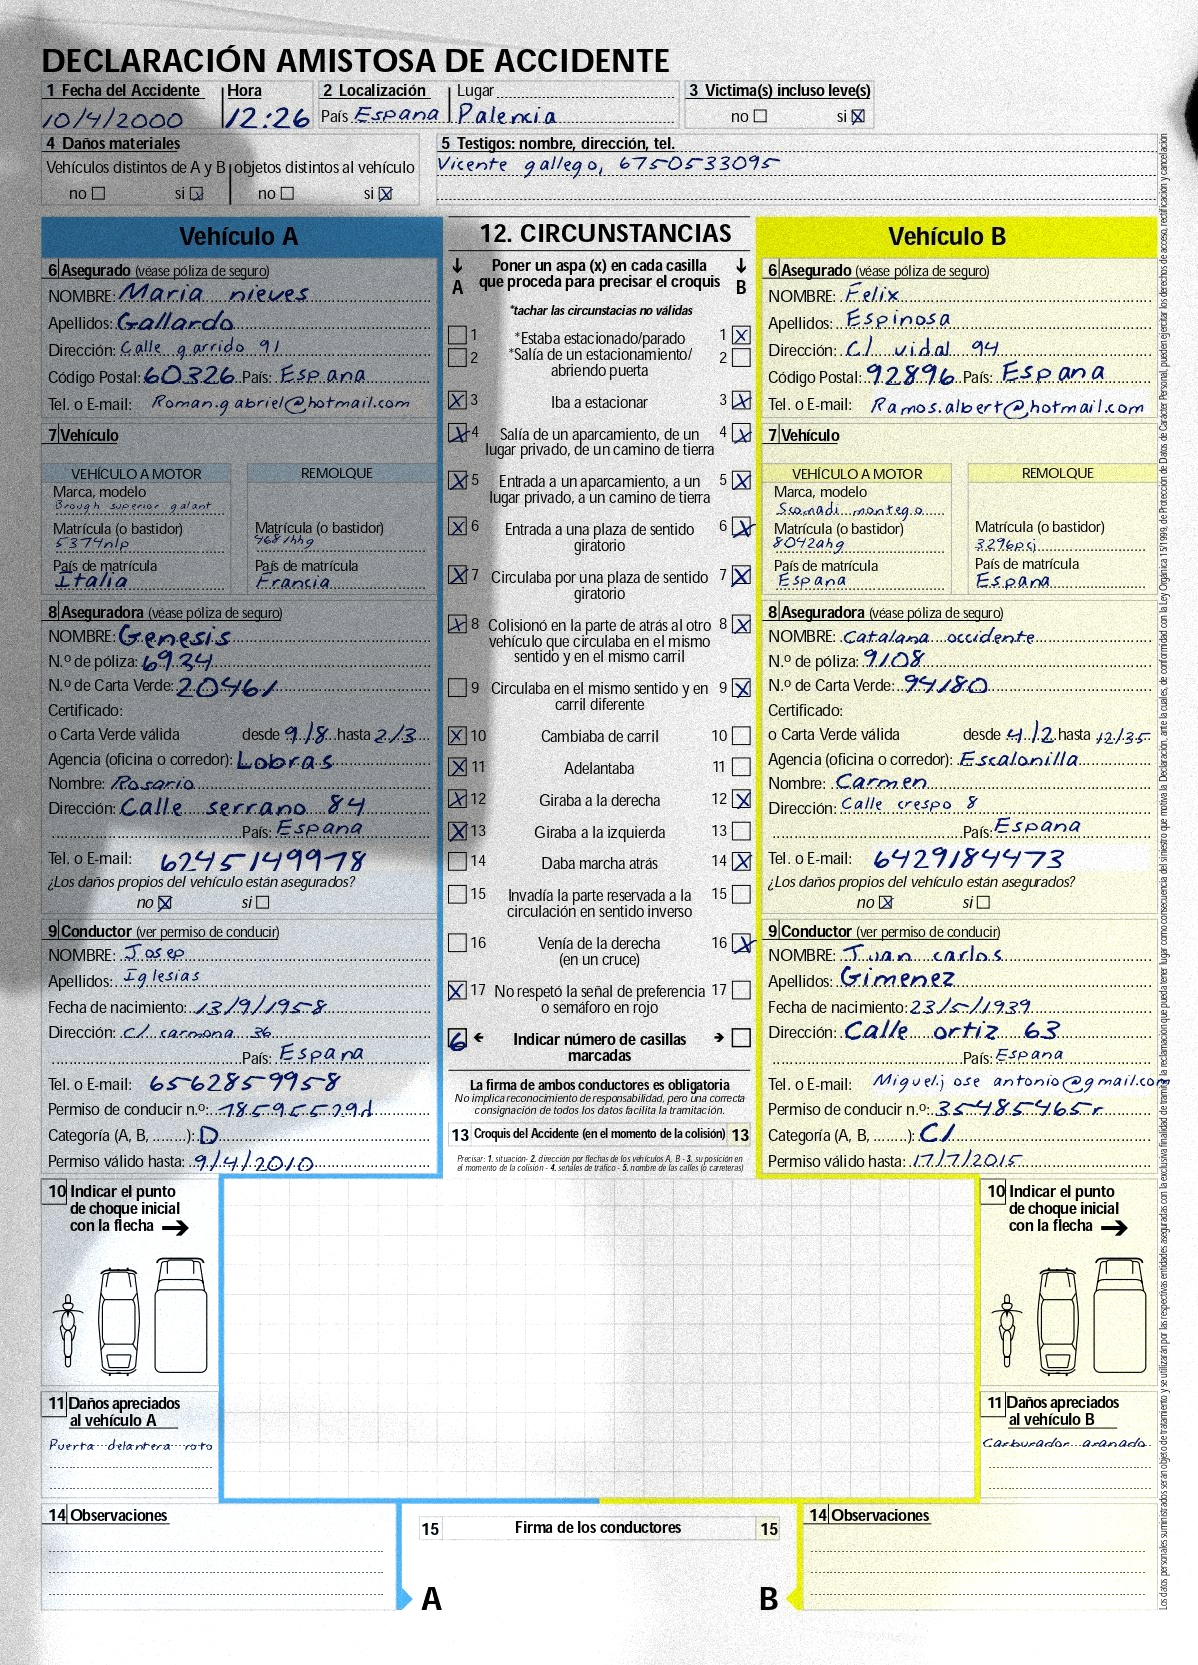 DECLARACIÓN AMISTOSA DE ACCIDENTE
1 Fecha del Accidente Hora 2 Localización Lugar 3 Victima(s) incluso leve(s)
10/4/2000 12:26 País Espana Palencia no si
4 Daños materiales
Vehículos distintos de A y B objetos distintos al vehículo
no si no si
5 Testigos: nombre, dirección, tel.
Vicente gallego, 6750533095
Vehículo A
6 Asegurado (véase póliza de seguro)
NOMBRE: Maria nieves
Apellidos: Gallardo
Dirección: Calle garrido 91
Código Postal: 60326 País: Espana
Tel. o E-mail: Roman.gabriel@hotmail.com
7 Vehículo
VEHÍCULO A MOTOR REMOLQUE
Marca, modelo
Brough superior galant
Matrícula (o bastidor) Matrícula (o bastidor)
5374nlp 4681hhg
País de matrícula País de matrícula
Italia Francia
8 Aseguradora (véase póliza de seguro)
NOMBRE: Genesis
N.º de póliza: 6934
N.º de Carta Verde: 20461
Certificado:
o Carta Verde válida desde 9/8 hasta 2/3
Agencia (oficina o corredor): Lobras
Nombre: Rosario
Dirección: Calle serrano 84
País: Espana
Tel. o E-mail: 6245149978
¿Los daños propios del vehículo están asegurados?
no si
9 Conductor (ver permiso de conducir)
NOMBRE: Josep
Apellidos: Iglesias
Fecha de nacimiento: 13/9/1958
Dirección: C/ carmona 36
País: Espana
Tel. o E-mail: 6562859958
Permiso de conducir n.º: 78595529d
Categoría (A, B, ........): D
Permiso válido hasta: 9/4/2010
12. CIRCUNSTANCIAS
A Poner un aspa (x) en cada casilla que proceda para precisar el croquis B
*tachar las circunstacias no válidas
1 *Estaba estacionado/parado 1
2 *Salía de un estacionamiento/ 2
abriendo puerta
3 Iba a estacionar 3
4 Salía de un aparcamiento, de un 4
lugar privado, de un camino de tierra
5 Entrada a un aparcamiento, a un 5
lugar privado, a un camino de tierra
6 Entrada a una plaza de sentido 6
giratorio
7 Circulaba por una plaza de sentido 7
giratorio
8 Colisionó en la parte de atrás al otro 8
vehículo que circulaba en el mismo
sentido y en el mismo carril
9 Circulaba en el mismo sentido y en 9
carril diferente
10 Cambiaba de carril 10
11 Adelantaba 11
12 Giraba a la derecha 12
13 Giraba a la izquierda 13
14 Daba marcha atrás 14
15 Invadía la parte reservada a la 15
circulación en sentido inverso
16 Venía de la derecha 16
(en un cruce)
17 No respetó la señal de preferencia 17
o semáforo en rojo
6 Indicar número de casillas
marcadas
La firma de ambos conductores es obligatoria
No implica reconocimiento de responsabilidad, pero una correcta
consignación de todos los datos facilita la tramitación.
13 Croquis del Accidente (en el momento de la colisión) 13
Precisar: 1. situación- 2. dirección por flechas de los vehículos A, B - 3. su posición en
el momento de la colisión - 4. señales de tráfico - 5. nombre de las calles (o carreteras)
Vehículo B
6 Asegurado (véase póliza de seguro)
NOMBRE: Felix
Apellidos: Espinosa
Dirección: C/ vidal 94
Código Postal: 92896 País: Espana
Tel. o E-mail: Ramos.albert@hotmail.com
7 Vehículo
VEHÍCULO A MOTOR REMOLQUE
Marca, modelo
Scomadi montego
Matrícula (o bastidor) Matrícula (o bastidor)
8042ahg 3296pcj
País de matrícula País de matrícula
Espana Espana
8 Aseguradora (véase póliza de seguro)
NOMBRE: Catalana occidente
N.º de póliza: 9108
N.º de Carta Verde: 94180
Certificado:
o Carta Verde válida desde 4/2 hasta 12/35
Agencia (oficina o corredor): Escalonilla
Nombre: Carmen
Dirección: Calle crespo 8
País: Espana
Tel. o E-mail: 6429184473
¿Los daños propios del vehículo están asegurados?
no si
9 Conductor (ver permiso de conducir)
NOMBRE: Juan carlos
Apellidos: Gimenez
Fecha de nacimiento: 23/5/1939
Dirección: Calle ortiz 63
País: Espana
Tel. o E-mail: Miguel.jose antonio@gmail.com
Permiso de conducir n.º: 35485465r
Categoría (A, B, ........): C1
Permiso válido hasta: 17/7/2015
10 Indicar el punto
de choque inicial
con la flecha
11 Daños apreciados
al vehículo A
Puerta delantera roto
10 Indicar el punto
de choque inicial
con la flecha
11 Daños apreciados
al vehículo B
Carburador aranado
14 Observaciones
15 Firma de los conductores 15
A B
14 Observaciones
Los datos personales suministrados seran objeto de tratamiento y se utilizaran por las respectivas entidades aseguradas con la exclusiva finalidad de tramitar la reclamación que pueda tener lugar como consecuencia del siniestro que motiva la Declaración, ante la cuales, de conformidad con la Ley Orgánica 15/1999, de Protección de Datos de Carácter Personal, pueden ejercitar los derechos de acceso, rectificación y cancelación